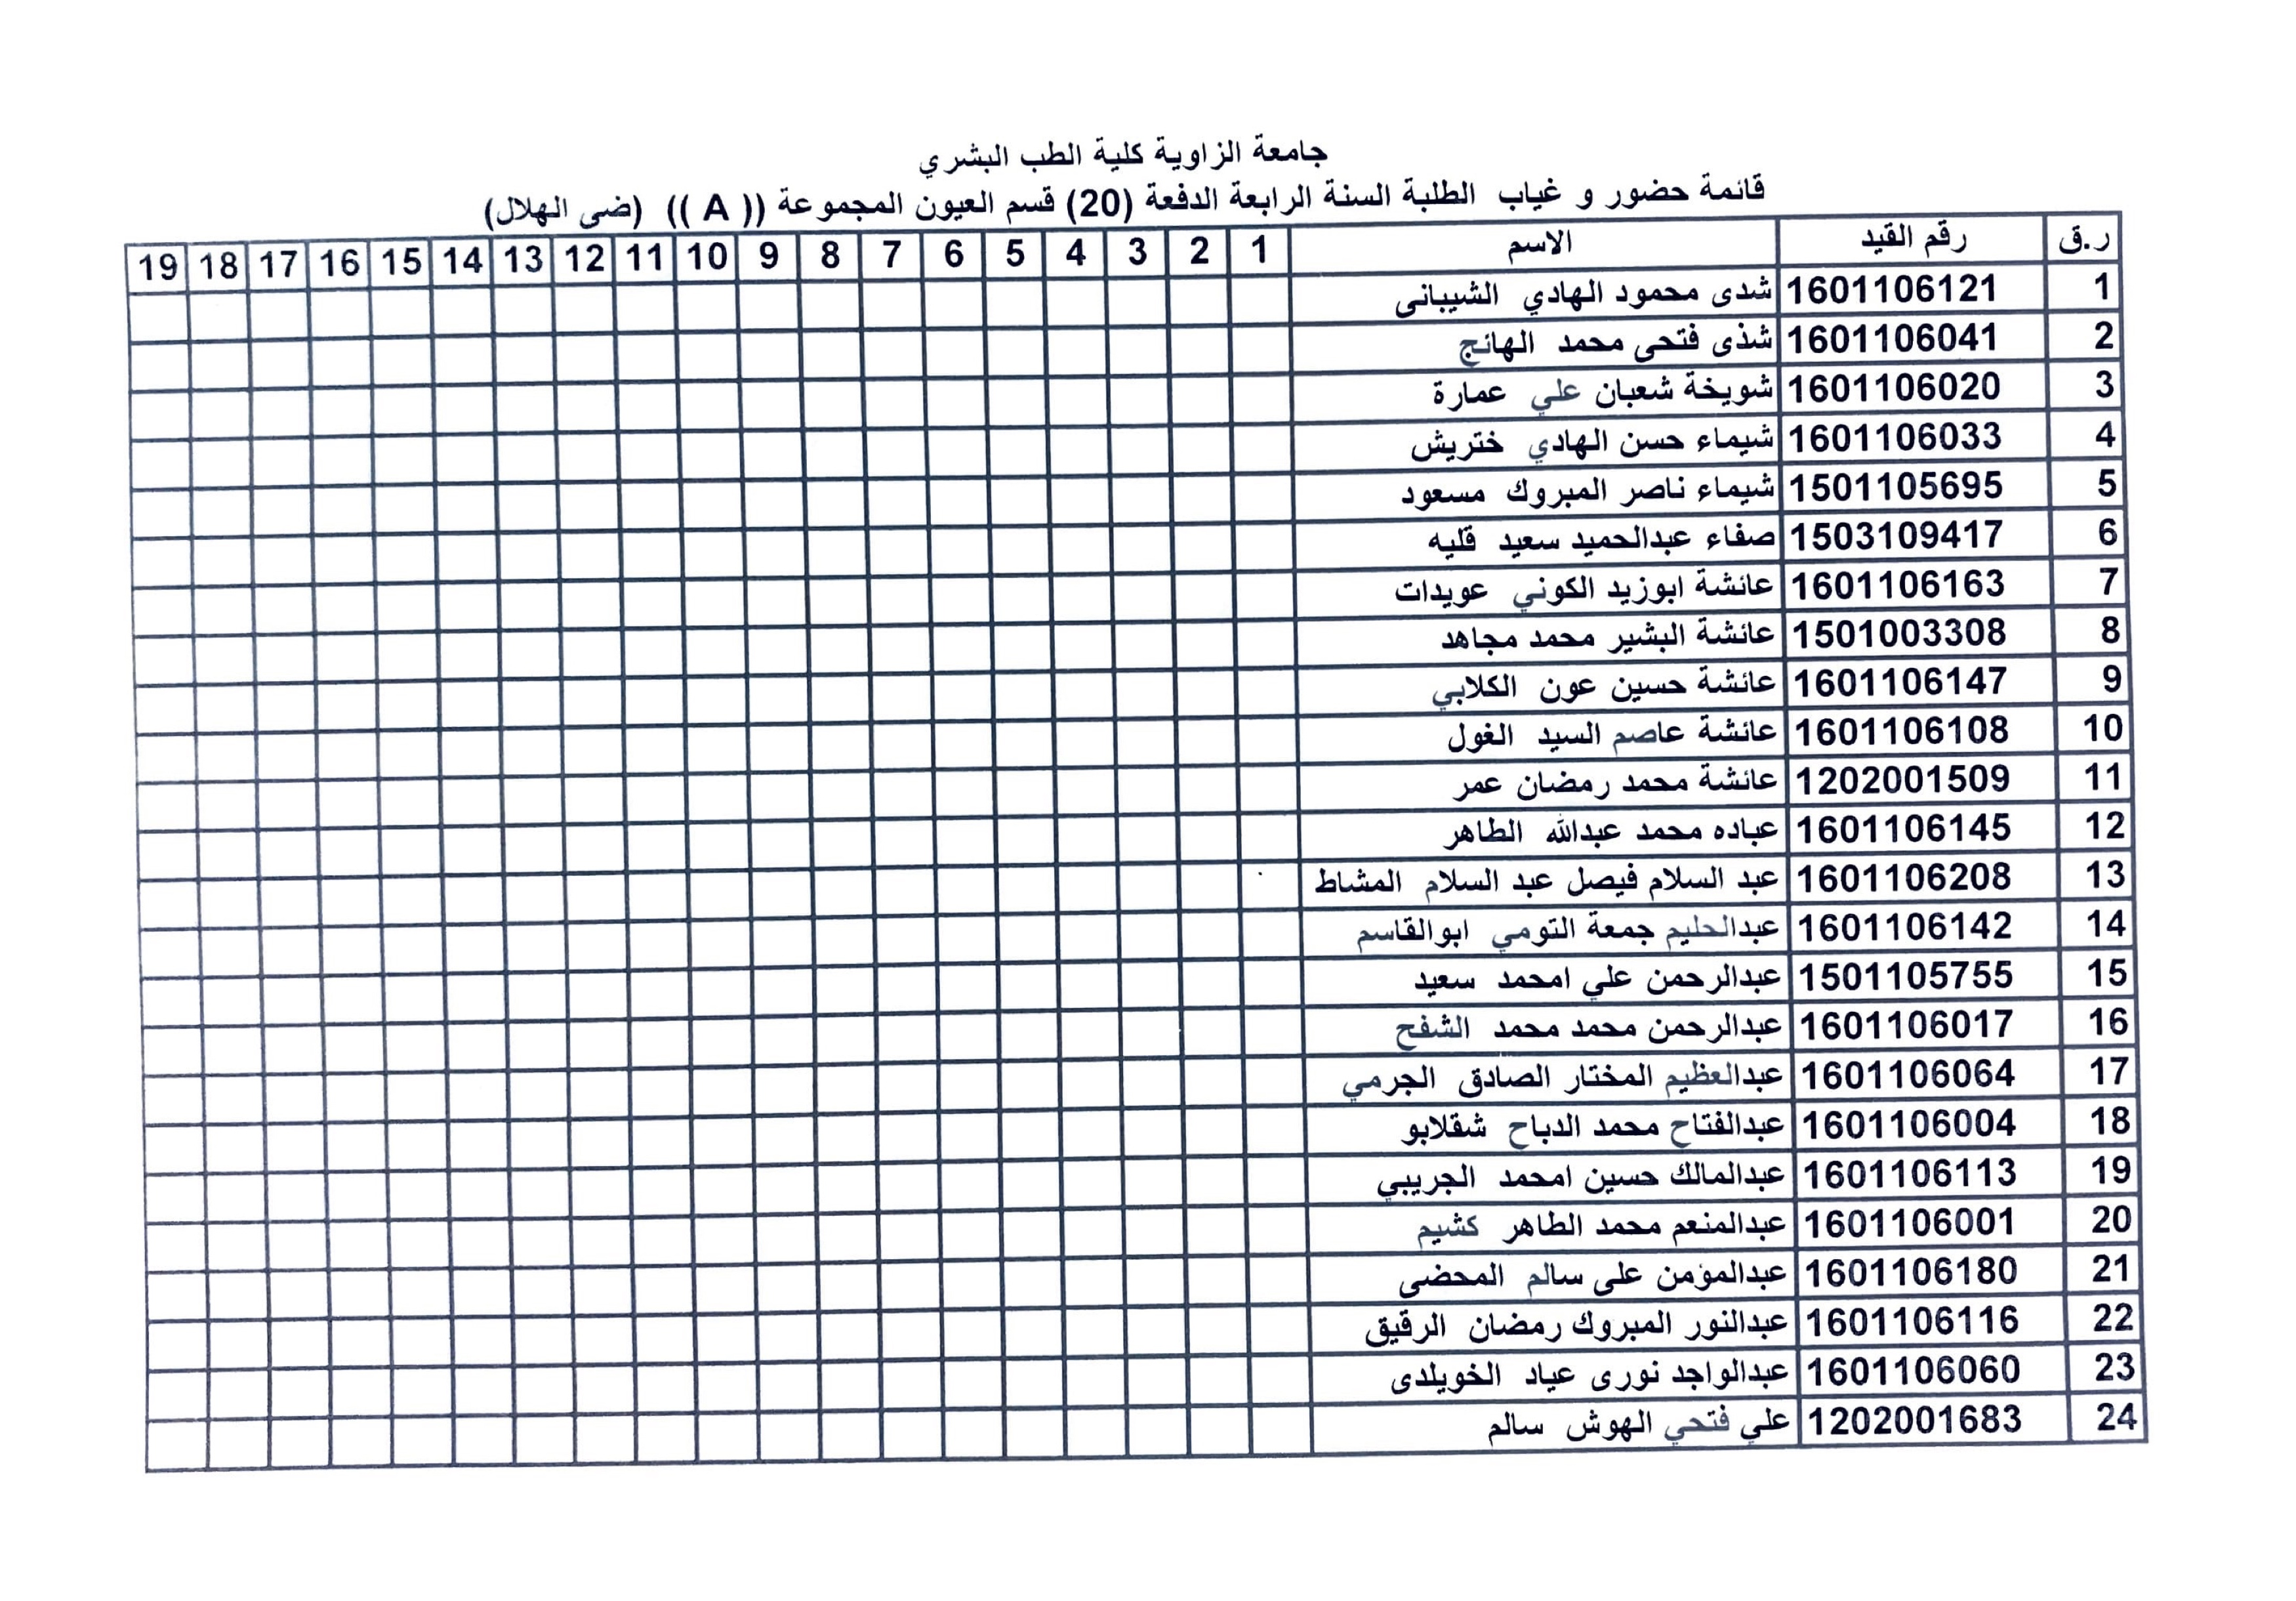 جامعة الزاوية كلية الطب البشري
قائمة حضور و غياب الطلبة السنة الرابعة الدفعة (20) قسم العيون المجموعة (( A )) (ضى الهلال)
ر.ق رقم القيد الاسم 1 2 3 4 5 6 7 8 9 10 11 12 13 14 15 16 17 18 19
1 1601106121 شدى محمود الهادي الشيبانى
2 1601106041 شذى فتحى محمد الهائج
3 1601106020 شويخة شعبان علي عمارة
4 1601106033 شيماء حسن الهادي ختريش
5 1501105695 شيماء ناصر المبروك مسعود
6 1503109417 صفاء عبدالحميد سعيد قليه
7 1601106163 عائشة ابوزيد الكوني عويدات
8 1501003308 عائشة البشير محمد مجاهد
9 1601106147 عائشة حسين عون الكلابي
10 1601106108 عائشة عاصم السيد الغول
11 1202001509 عائشة محمد رمضان عمر
12 1601106145 عباده محمد عبدالله الطاهر
13 1601106208 عبد السلام فيصل عبد السلام المشاط
14 1601106142 عبدالحليم جمعة التومي ابوالقاسم
15 1501105755 عبدالرحمن علي امحمد سعيد
16 1601106017 عبدالرحمن محمد محمد الشفح
17 1601106064 عبدالعظيم المختار الصادق الجرمي
18 1601106004 عبدالفتاح محمد الدباح شقلابو
19 1601106113 عبدالمالك حسين امحمد الجريبي
20 1601106001 عبدالمنعم محمد الطاهر كشيم
21 1601106180 عبدالمؤمن على سالم المحضى
22 1601106116 عبدالنور المبروك رمضان الرقيق
23 1601106060 عبدالواجد نورى عياد الخويلدى
24 1202001683 علي فتحي الهوش سالم